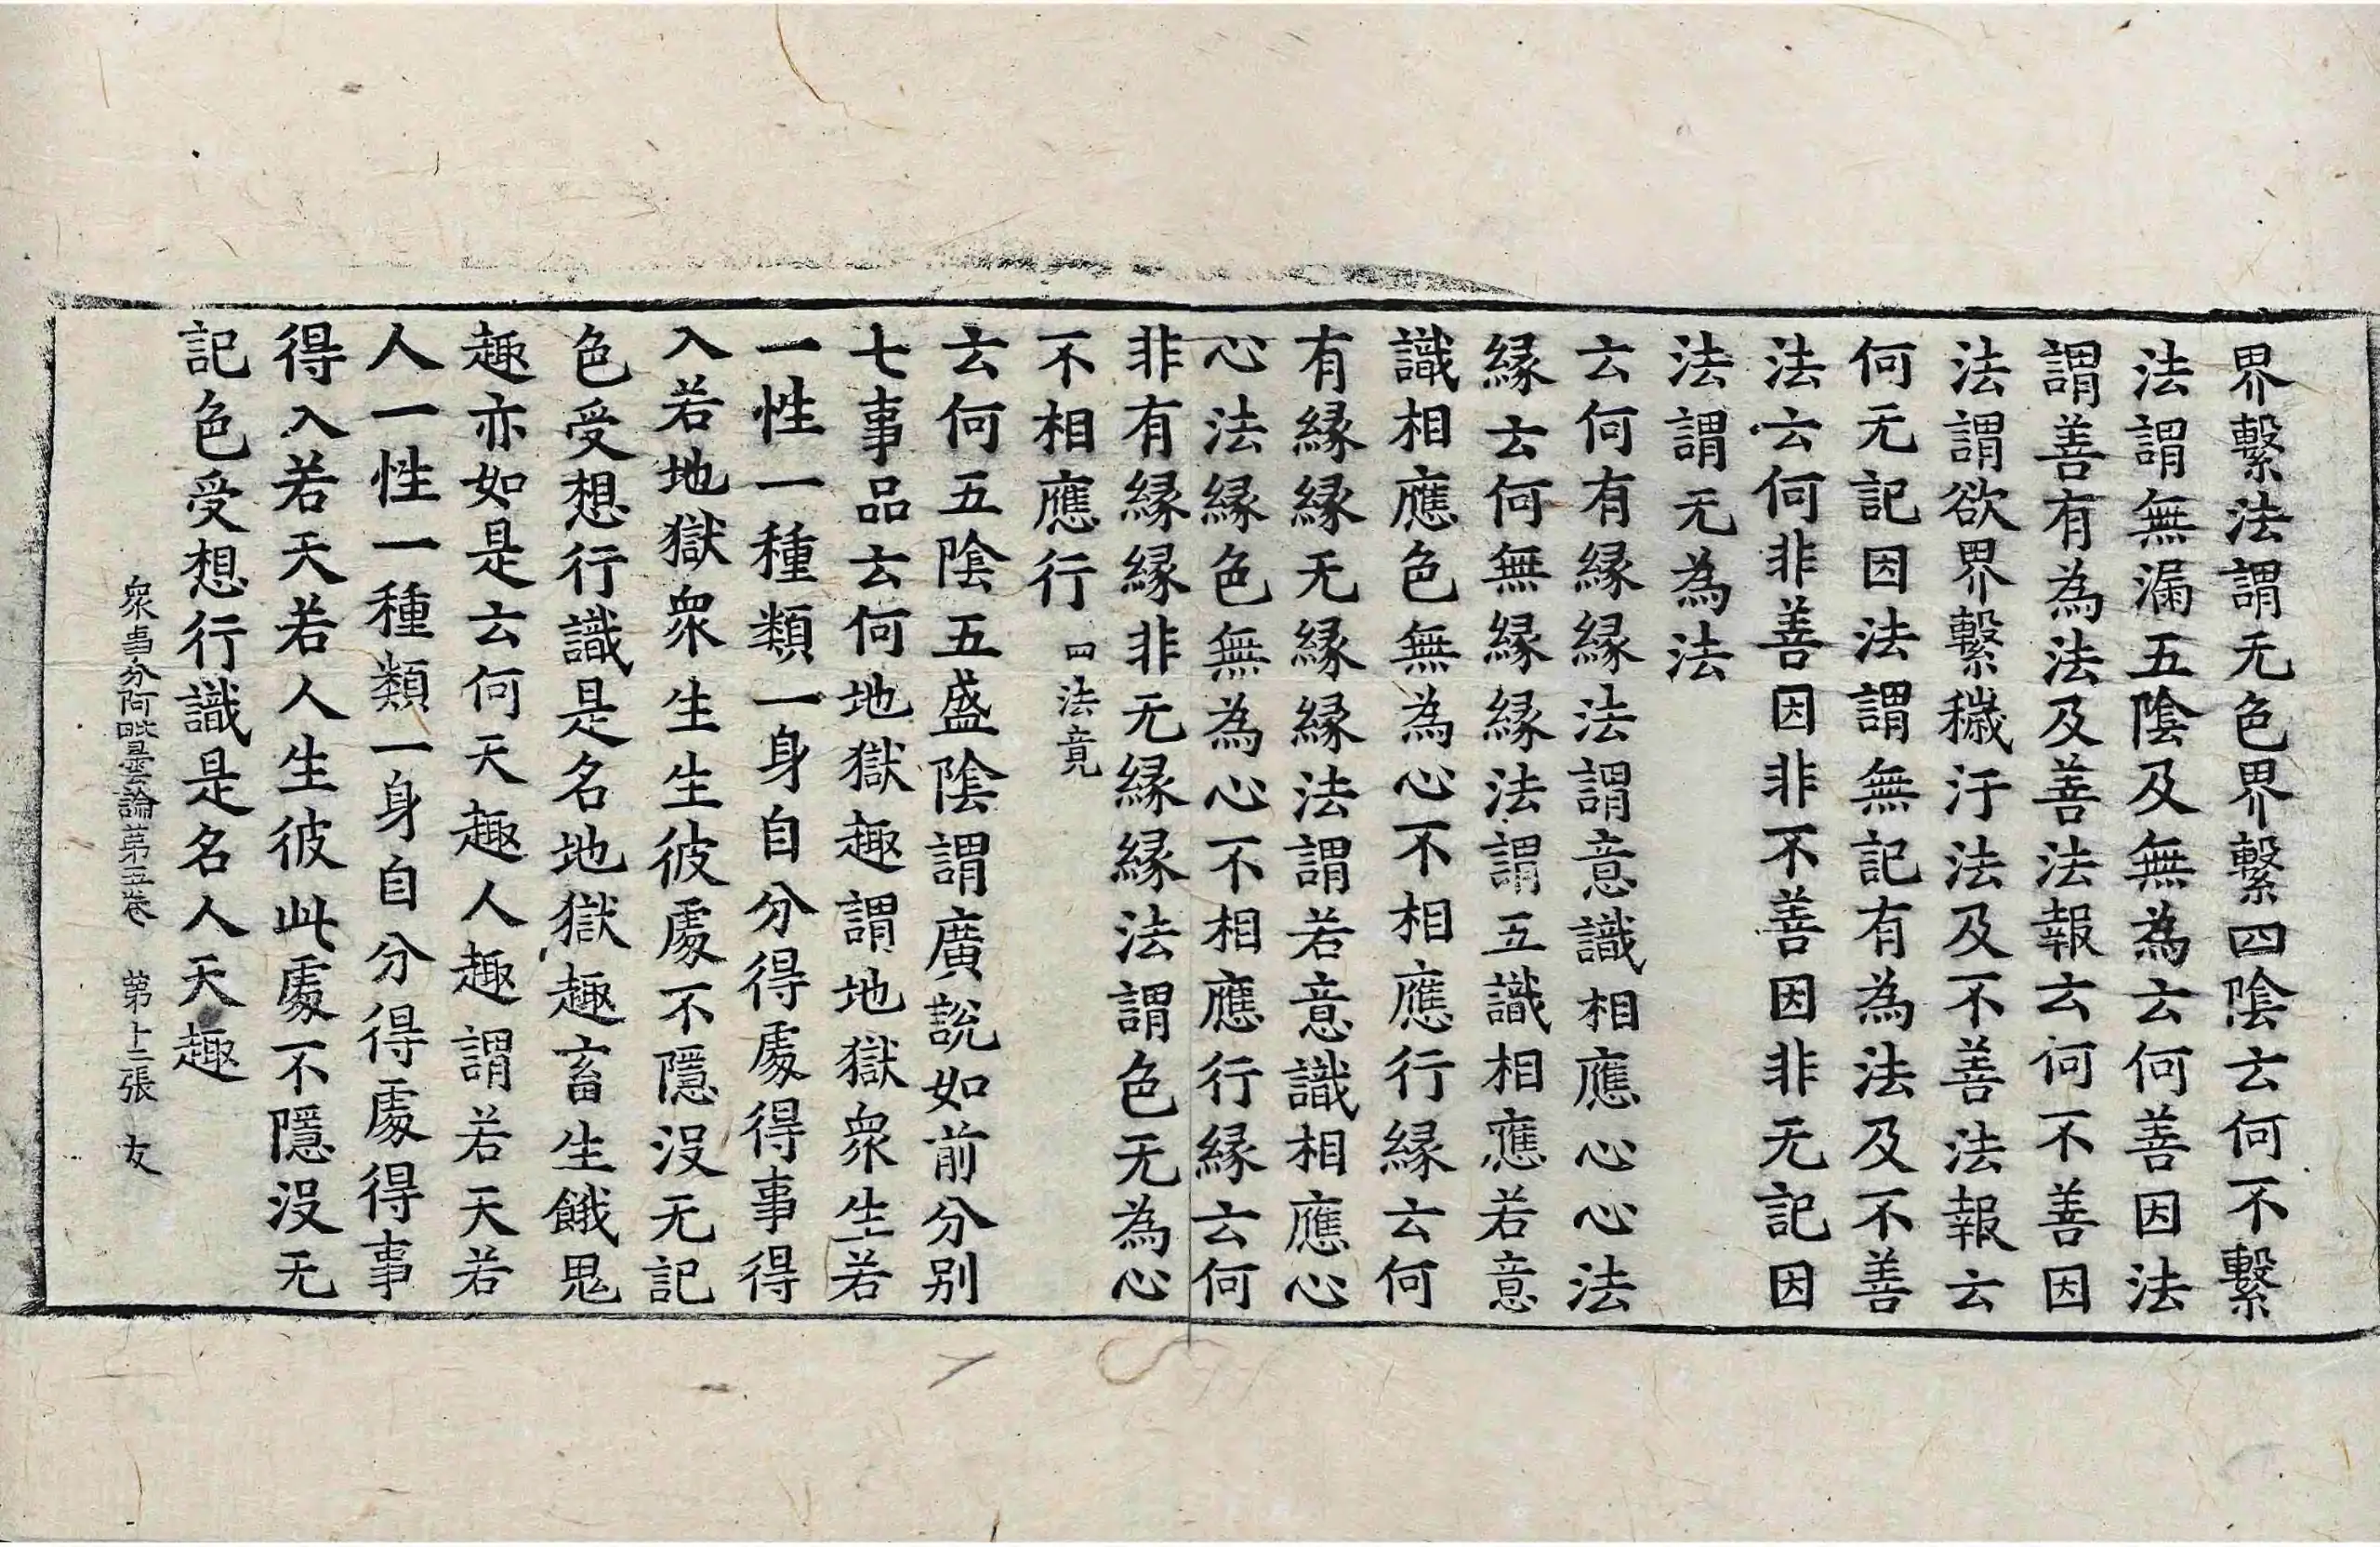 界繫法謂无色界繫四陰云何不繫
法謂無漏五陰及無為云何善因法
謂善有為法及善法報云何不善因
法謂欲界繫穢汙法及不善法報云
何无記因法謂無記有為法及不善
法云何非善因非不善因非无記因
法謂无為法
云何有緣緣法謂意識相應心心法
緣云何無緣緣法謂五識相應若意
識相應色無為心不相應行緣云何
有緣緣无緣緣法謂若意識相應心
心法緣色無為心不相應行緣云何
非有緣緣非无緣緣法謂色无為心
不相應行 四法竟
云何五陰五盛陰謂廣說如前分别
七事品云何地獄趣謂地獄衆生若
一性一種類一身自分得處得事得
入若地獄衆生生彼處不隱沒无記
色受想行識是名地獄趣畜生餓鬼
趣亦如是云何天趣人趣謂若天若
人一性一種類一身自分得處得事
得入若天若人生彼此處不隱沒无
記色受想行識是名人天趣
衆事分阿毗曇論第五卷 第十二張 友